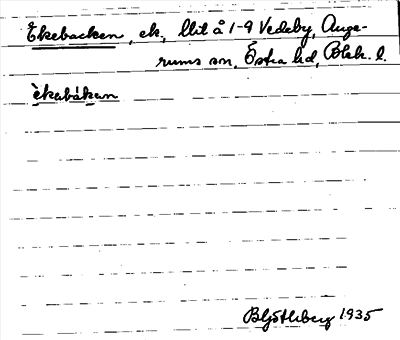 Ekebacken, ek, lbit å 1-9 Vedeby, Auge-
rums sn, Östra hd, Blek. l.
èkabákan
B Götlberg 1935